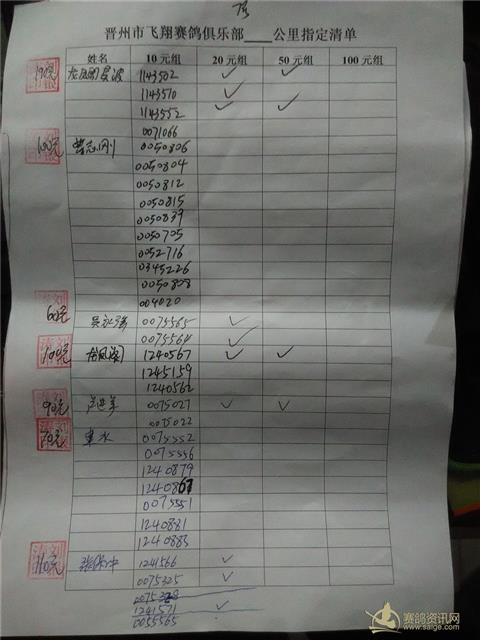 晋州市飞翔赛鸽俱乐部____公里指定清单
姓名 10 元组 20 元组 50 元组 100 元组
190元 1143502 ✓ ✓
1143510 ✓
1143552 ✓ ✓
0071066
100元 曹志刚 0050806
0050804
0050812
0050815
0050839
0050705
0052716
0345226
0050808
004020
60元 吴永强 0075565 ✓
0075564 ✓
100元 1240567 ✓ ✓
1245159
1240562
90元 0075027 ✓ ✓
0075022
70元 0075552
0075556
1240879
1240867
0075551
1240881
1240883
110元 1241566 ✓
0075325 ✓
1241571 ✓
0055565
赛鸽资讯网
www.saige.com